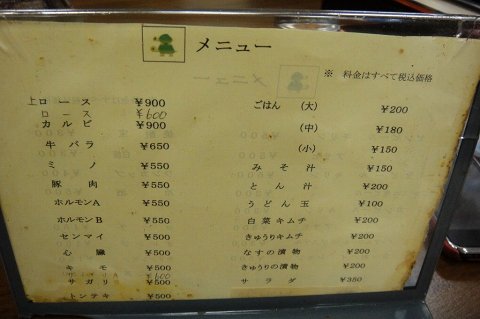 メニュー
※ 料金はすべて税込価格
上ロース ¥900
ロース ¥600
カルビ ¥900
牛バラ ¥650
ミノ ¥550
豚肉 ¥550
ホルモンA ¥550
ホルモンB ¥550
センマイ ¥500
心臓 ¥500
キモ ¥500
サガリ ¥500
トンテキ ¥500
ごはん (大) ¥200
(中) ¥180
(小) ¥150
みそ汁 ¥150
とん汁 ¥200
うどん玉 ¥100
白菜キムチ ¥200
きゅうりキムチ ¥200
なすの漬物 ¥200
きゅうりの漬物 ¥200
サラダ ¥350